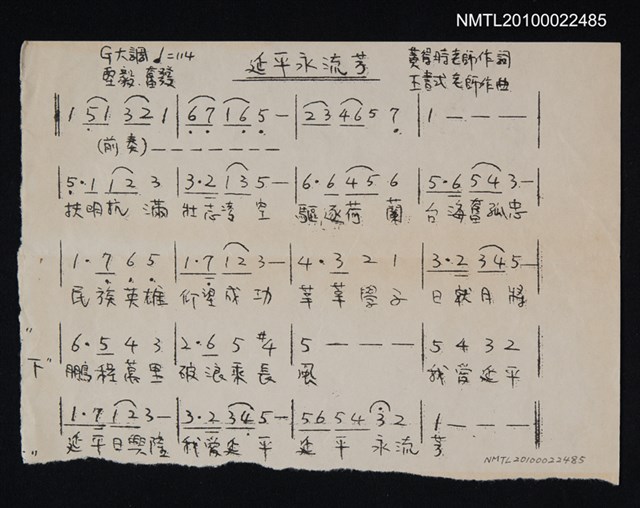 NMTL20100022485
G大調 ♩=114
堅毅.奮發
延平永流芳
老師作詞
王書式老師作曲
1 51 32 1 | 67 16 5 — | 23 46 5 7 | 1 — — —
(前奏)— — — — — — —
5·1 12 3 | 3·2 13 5 — | 6·6 45 6 | 5·6 54 3 —
扶明抗滿 壯志凌空 驅逐荷蘭 台海奮孤忠
1·7 6 5 | 1·7 12 3 — | 4·3 2 1 | 3·2 34 5 —
民族英雄 仰望成功 莘莘學子 日就月將
6·5 4 3 | 2·6 5 #4 | 5 — — — | 5 4 3 2
"下" 鵬程萬里 破浪乘長風 我爱延平
1·7 12 3 — | 3·2 34 5 — | 56 54 3 2 | 1 — — —
延平日興隆 我爱延平 延平永流芳
NMTL20100022485